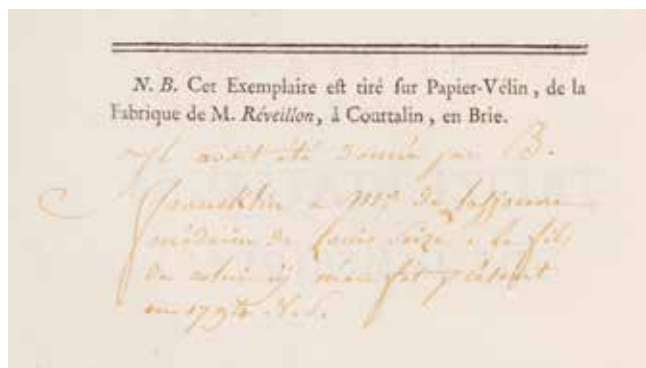 N. B. Cet Exemplaire est tiré sur Papier-Vélin, de la
Fabrique de M. Réveillon, à Courtalin, en Brie.
Il avoit été donné par B.
Francklin a Mr. de Lassonne
médecin de Louis Seize & le fils
de celui cy m'en fit présent
en